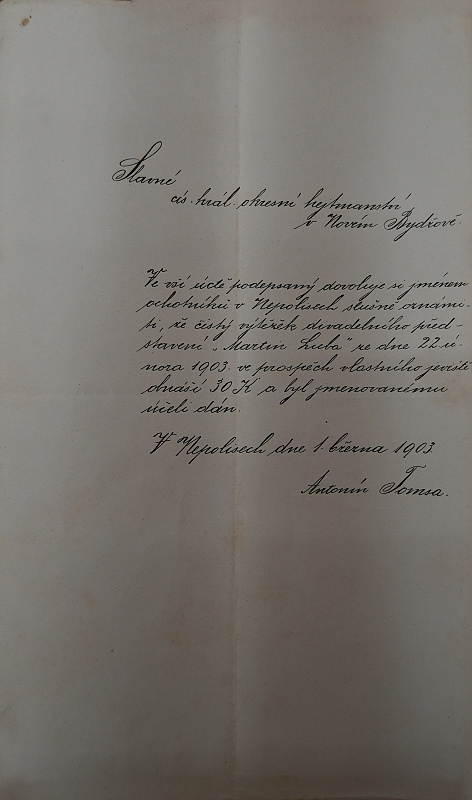 Slavné
cís. král. okresní hejtmanství
v Novém Bydžově.
Ve vší úctě podepsaný dovoluje si jménem
ochotníků v Nepolisech slušně oznámi-
ti, že čistý výtěžek divadelního před-
stavení „Martin Luba" ze dne 22. ú-
nora 1903 ve prospěch vlastního jeviště
obnáší 30 K a byl jmenovanému
účeli dán.
V Nepolisech dne 1. března 1903.
Antonín Tomsa.